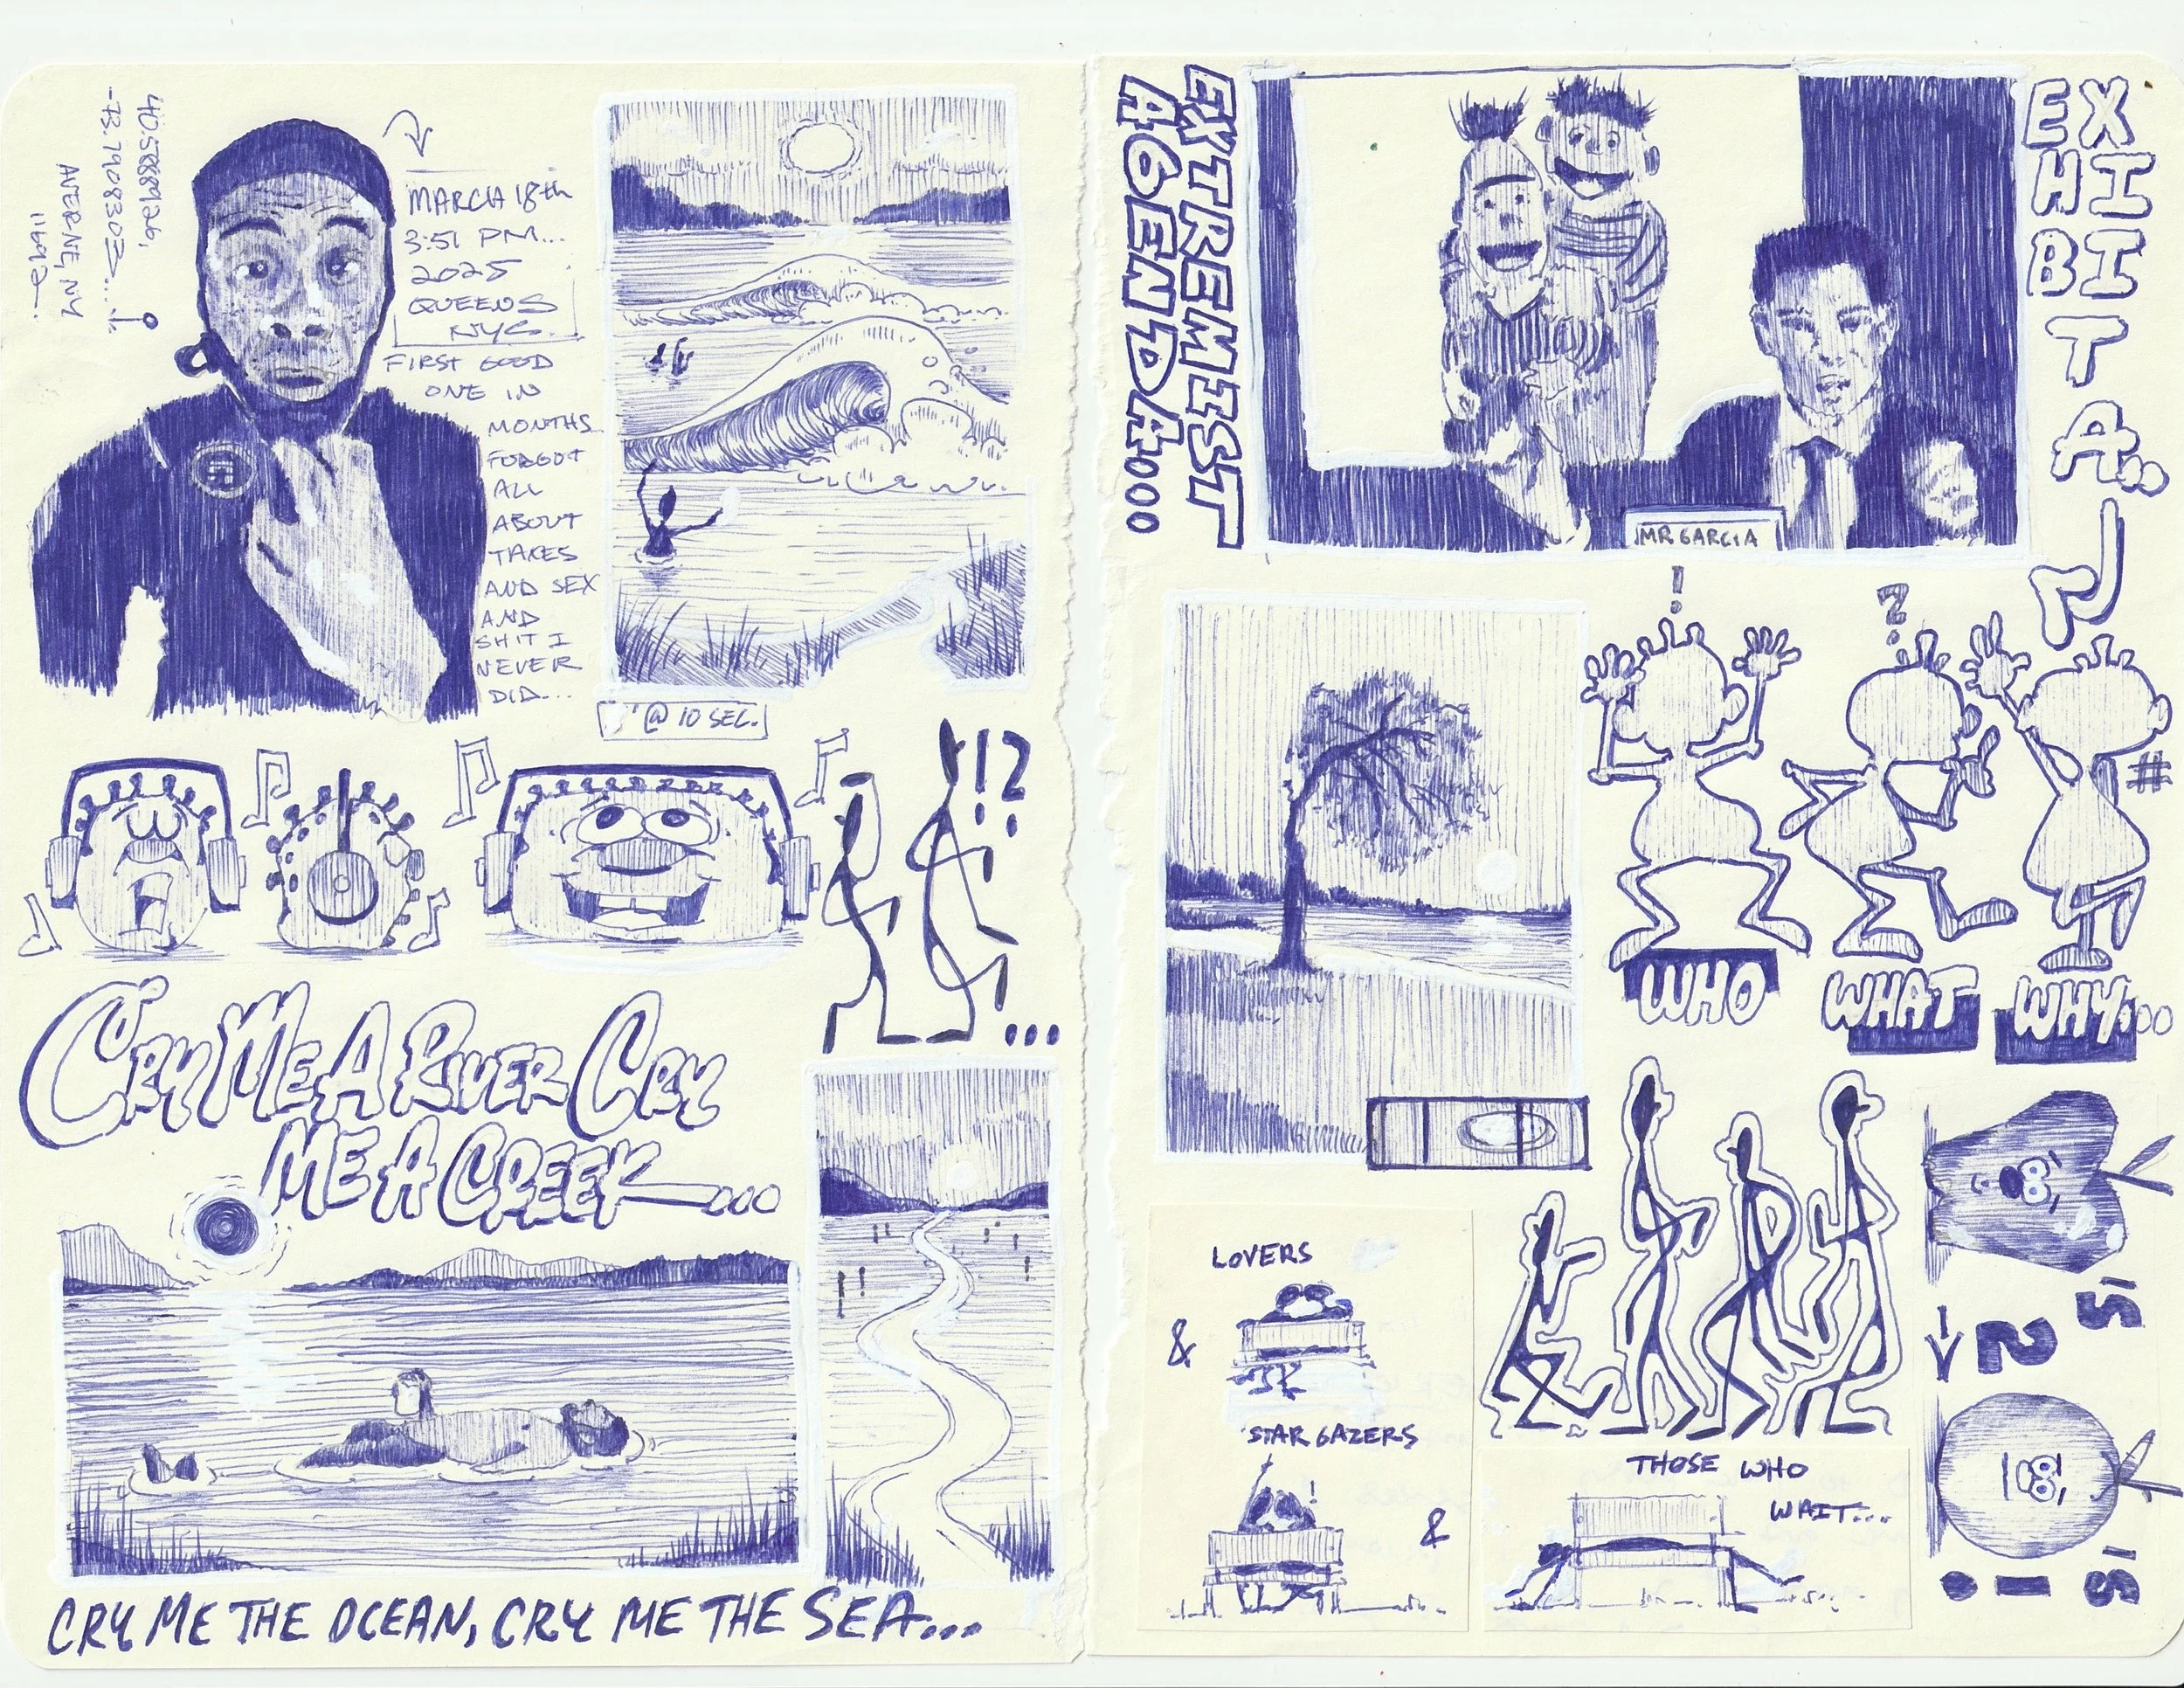 -73.7908303.....
AVERNE, NY
11692...
MARCH 18th
3:51 PM...
2025
QUEENS
NYC.
FIRST GOOD
ONE IN
MONTHS.
FORGOT
ALL
ABOUT
TAXES
AND SEX
AND
SHIT I
NEVER
DID...
@ 10 SEC.
!?
...
CRY ME A RIVER CRY
ME A CREEK...
CRY ME THE OCEAN, CRY ME THE SEA...
EXTREMIST
AGENDA...
EXHIBIT A..
MR GARCIA
!
?
#
WHO
WHAT
WHY...
LOVERS
&
STARGAZERS
!
&
THOSE WHO
WAIT...